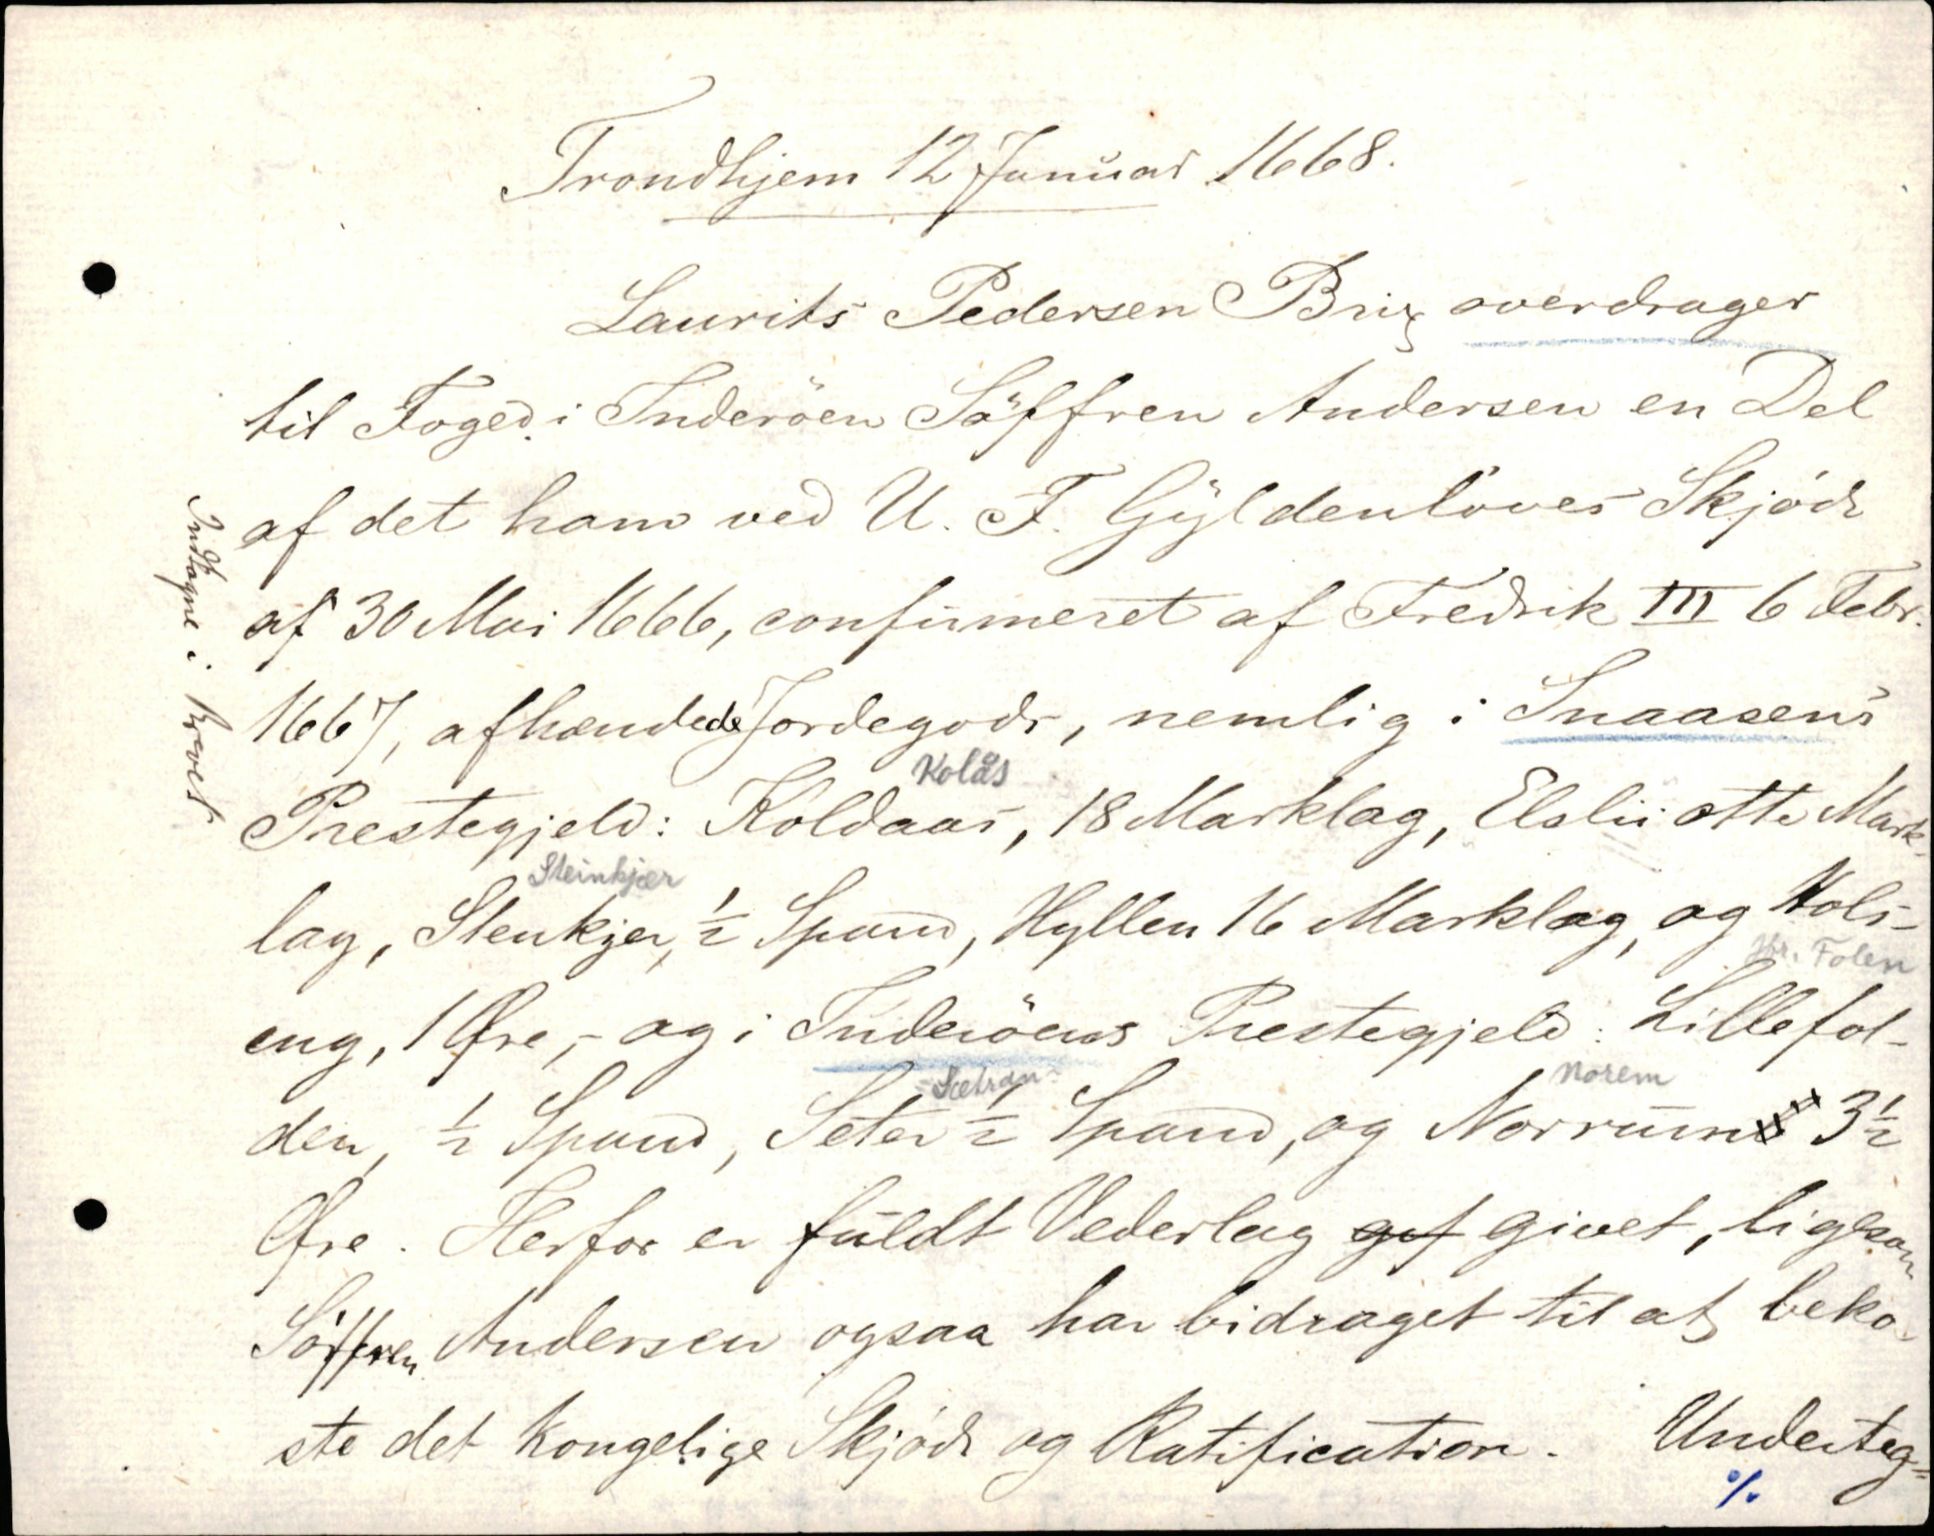 Trondhjem 12 Januar 1668.
Laurits Pedersen Brix overdrager
til Foged i Inderöen Söffren Andersen en Del
af det ham ved U. F. Gyldenlöves Skjöde
af 30 Mai 1666, confirmeret af Fredrik III 6 Febr.
1667, afhændede Jordegods, nemlig i Snaasens
Kolås
Prestegjeld: Koldaas, 18 Marklag, Elslii otte Mark-
Steinkjær
lag, Stenkjer, ½ Spand, Hyllen 16 Marklag, og Hols-
Folen
eng, 1 Øre,- og i Inderöens Prestegjeld: Lillefol-
Sætran Norem
den, ½ Spand, Seter ½ Spand, og Norrum 3½
Øre. Herfor er fuldt Vederlag gef givet, ligesom
Söffren Andersen ogsaa har bidraget til at beko-
ste det kongelige Skjöde og Ratification. Underteg-
%.
Indtagne i Brevet